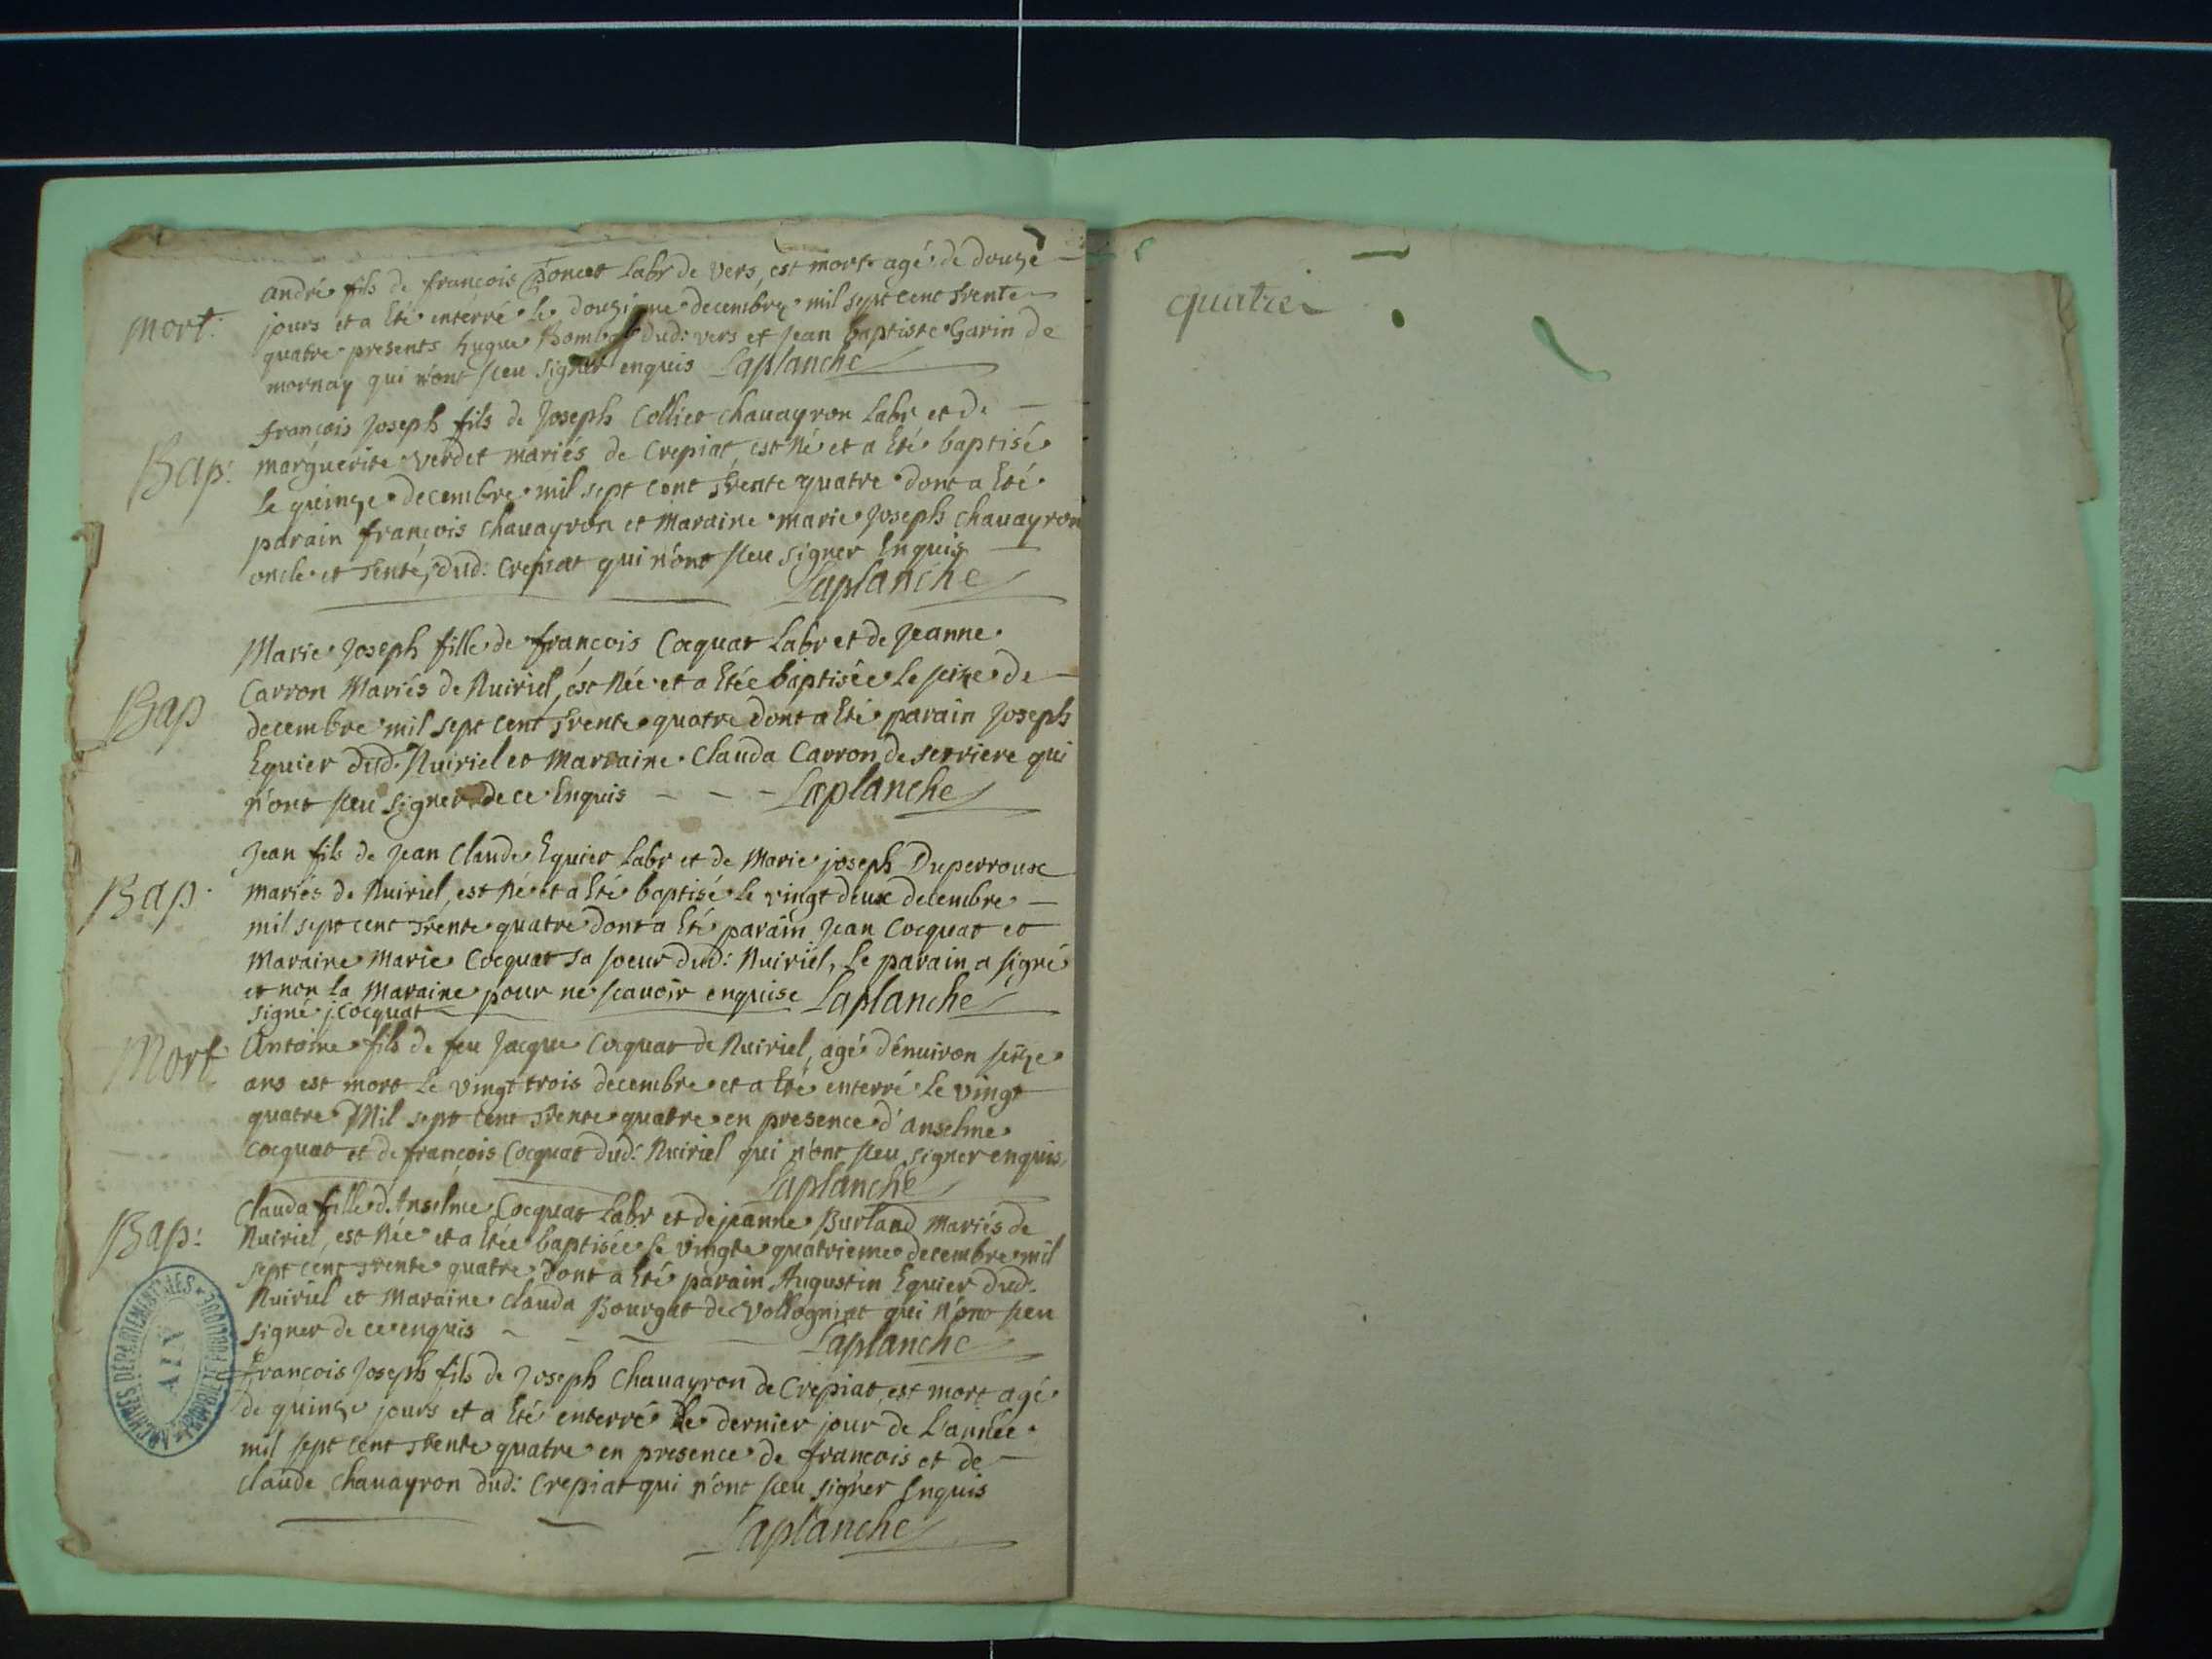 André fils de françois Poncet Labr de vers, est mort agé de douze
mort. jours et a Eté enterré le douzieme decembre mil sept cent trente
quatre presents hugue Bomboy dud: vers et Jean baptiste Garin de
mornay qui n'ont sceu signer enquis Laplanche
françois Joseph fils de Joseph Colliet chauayron Labr et de
Bap: marguerite verdet mariés de Crepiat, est Né et a Eté baptisé
le quinze decembre mil sept cent trente quatre dont a Eté
parain françois chauayron et Maraine marie Joseph chauayron
oncle et tente, dud: Crepiat qui n'ont sceu signer Enquis
Laplanche
Marie Joseph fille de françois Cocquat Labr et de Jeanne
Bap Carron Mariés de Nuiriel, est Née et a Etée baptisée le seize de
decembre mil sept cent trente quatre dont a Eté parain Joseph
Equier dud. Nuiriel et Marraine Clauda Carron de serriere qui
n'ont sceu signer de ce Enquis Laplanche
Jean fils de Jean Claude Equier Labr et de Marie joseph Duperroux
Bap. mariés de Nuiriel, est Né et a Eté baptisé le vingt deux decembre
mil sept cent trente quatre dont a Eté parain Jean Cocquat et
Maraine Marie Cocquat sa soeur dud: Nuiriel, Le parain a signé
et non la Maraine pour ne scauoir enquise Laplanche
signé j: Cocquat
Mort Antoine fils de feu Jacque Cocquat de Nuiriel, agé d'enuiron seize
ans est mort le vingt trois decembre et a Eté enterré le vingt
quatre Mil sept cent trente quatre en presence d'anselme
Cocquat et de françois Cocquat dud: Nuiriel qui n'ont sceu signer enquis
Laplanche
Clauda fille d'Anselme Cocquat Labr et de jeanne Burland Mariés de
Bap: Nuiriel, est Née et a Etée baptisée le vingte quatrieme decembre mil
sept cent trente quatre dont a Eté parain Augustin Equier dud.
Nuiriel et Maraine Clauda Bourgat de Vollogniat qui n'ont sceu
signer de ce enquis Laplanche
françois Joseph fils de Joseph Chauayron de Crepiat, est mort agé
de quinze jours et a Eté enterré le dernier jour de L'année
mil sept cent trente quatre en presence de francois et de
claude Chauayron dud: Crepiat qui n'ont sceu signer Enquis
Laplanche
ARCHIVES DEPARTEMENTALES
AIN
PROPRIETE PUBLIQUE
quatre